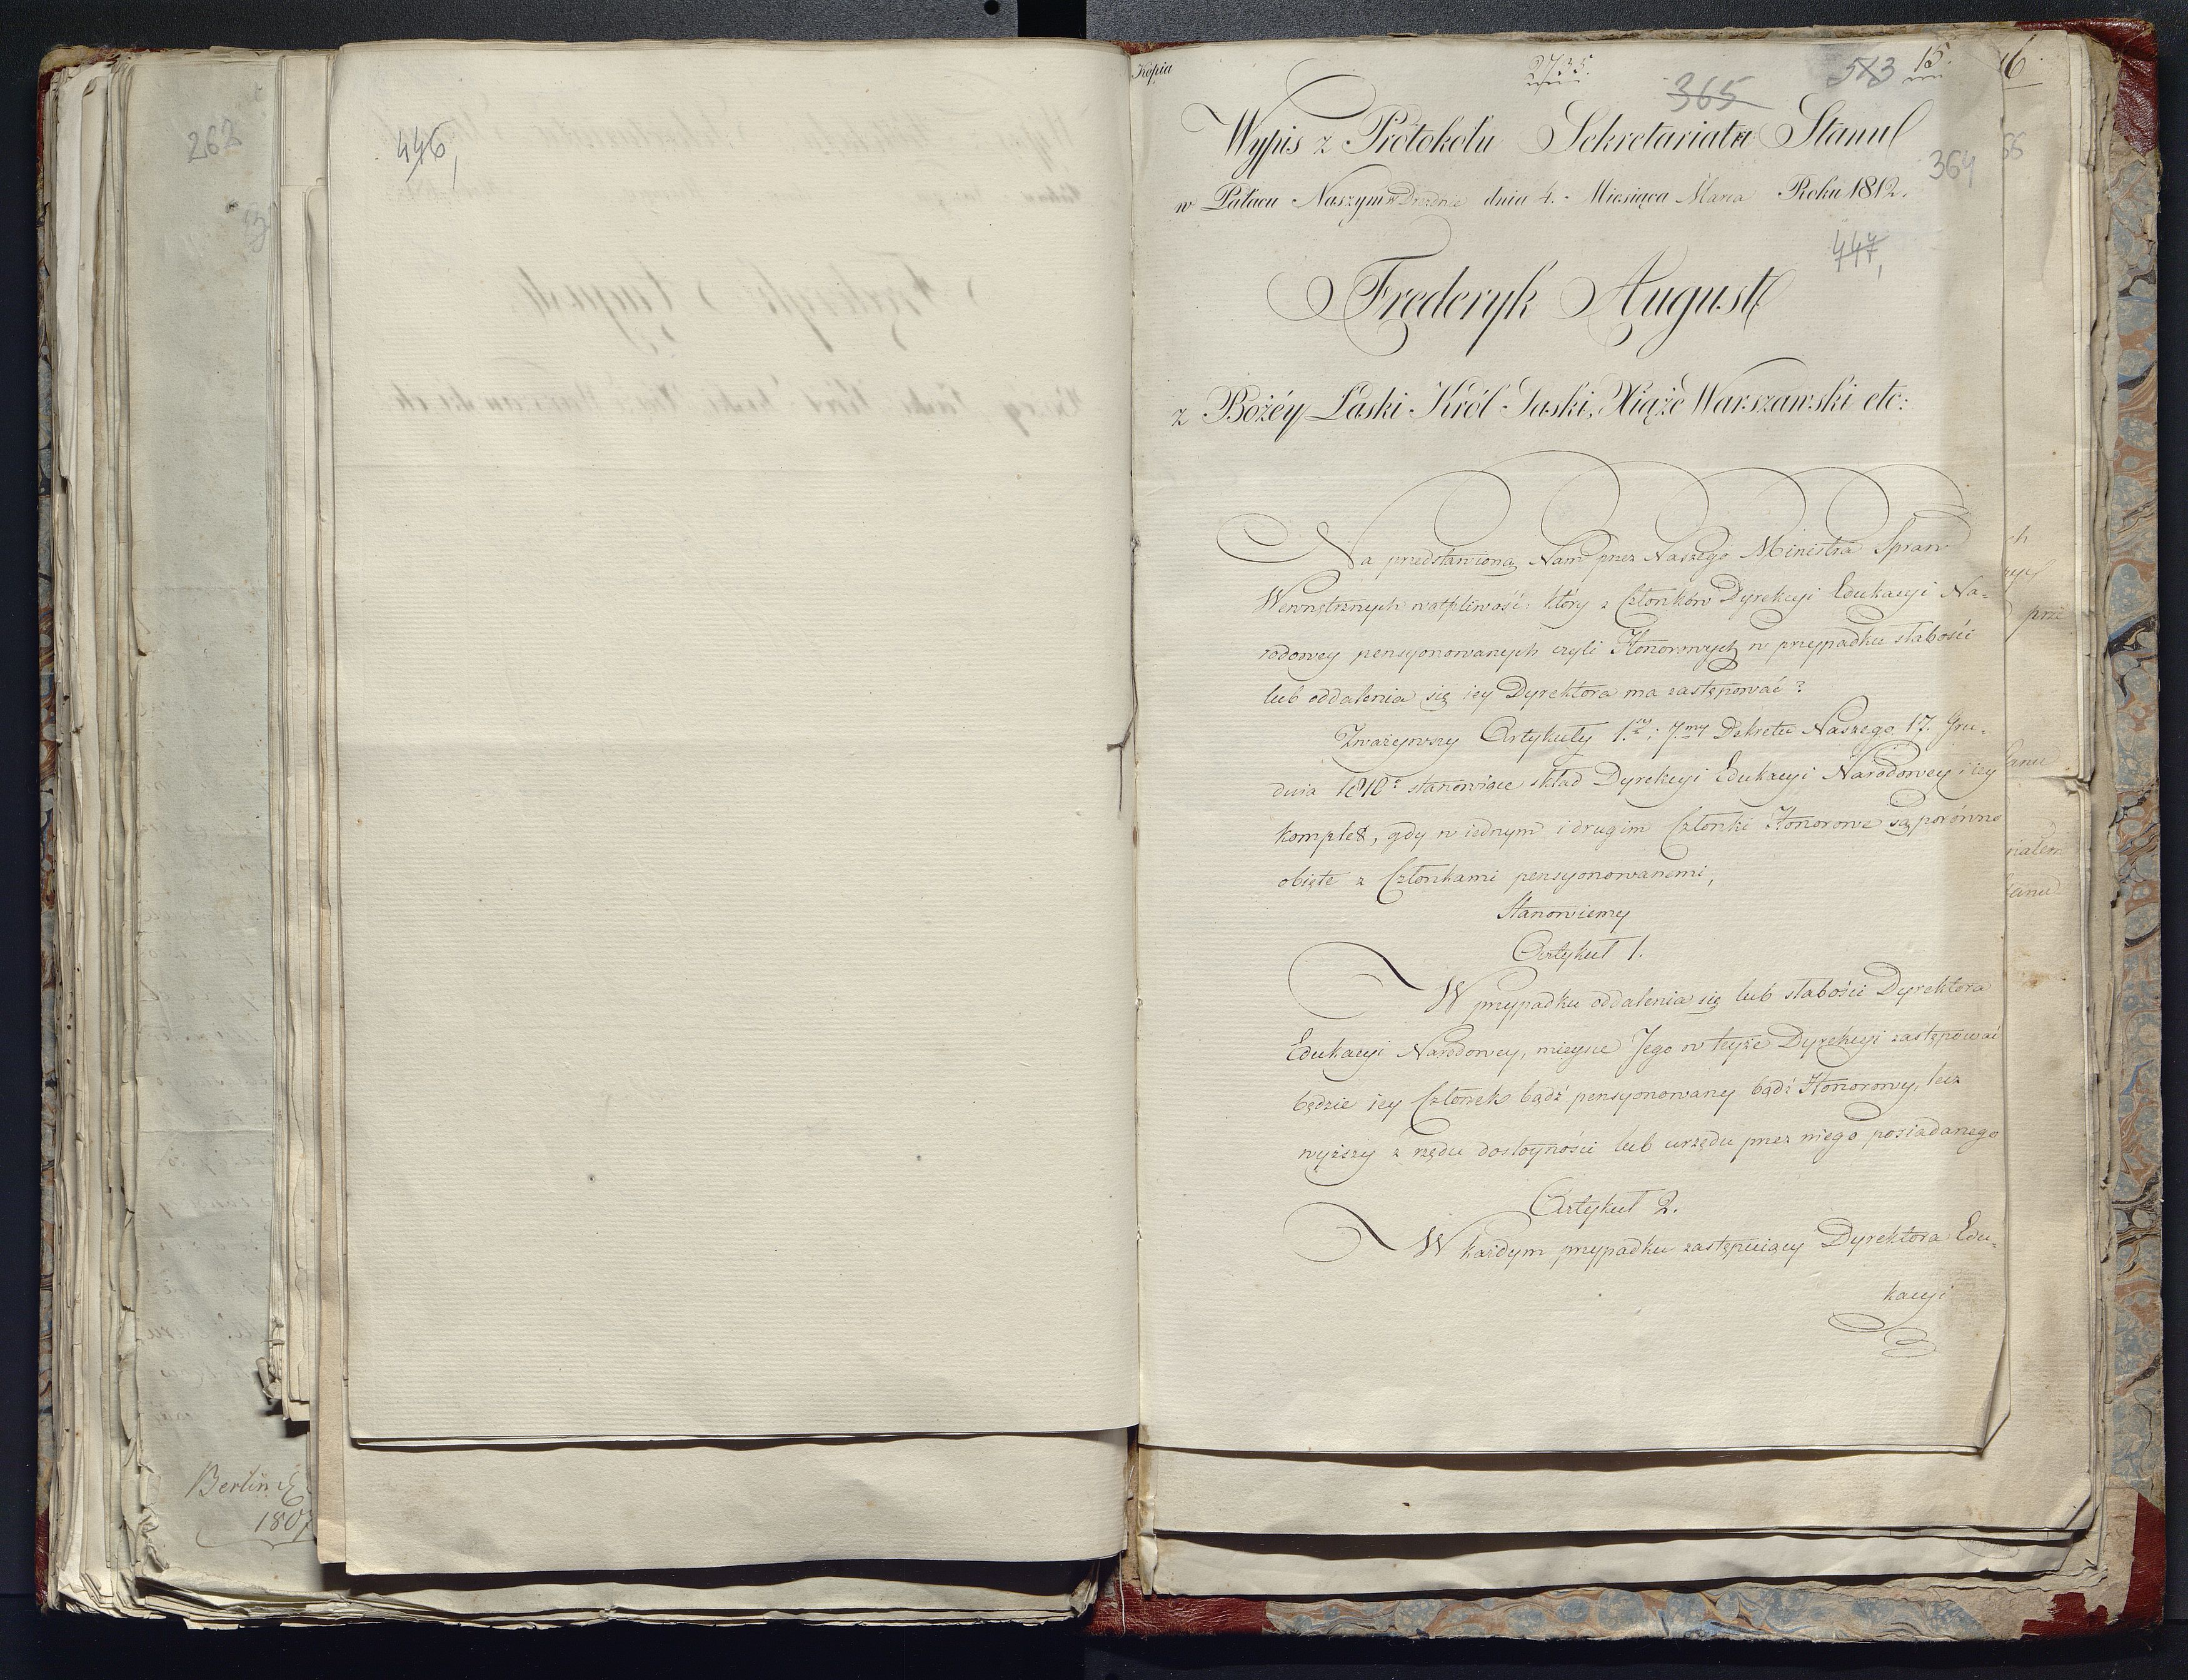 262
Berlin
1807
446,
Kopia
2735.
365
583
15.
16
364
447,
Wypis z Protokołu Sekretariatu Stanu
w Pałacu Naszym w Dreznie dnia 4. Miesiąca Marca Roku 1812.
Frederyk August
z Bożéy Łaski Król Saski, Xiąże Warszawski etc:
Na przedstawioną Nam przez Naszego Ministra Spraw
Wewnętrznych wątpliwość: który z Członków Dyrekcyi Edukacyi Na=
rodowey pensyonowanych czyli Honorowych w przypadku słabości
lub oddalenia się iey Dyrektora ma zastępować?
Zważywszy Artykuły 1.szy i 7.my Dekretu Naszego 17. Gru=
dnia 1810 r stanowiące skład Dyrekcyi Edukacyi Narodowey i iey
komplet, gdy w iednym i drugim Członki Honorowe są porówno
obięte z Członkami pensyonowanemi,
Stanowiemy
Artykuł 1.
W przypadku oddalenia się lub słabości Dyrektora
Edukacyi Narodowey, mieysce Jego w teyże Dyrekcyi zastępować
będzie iey Członek bądź pensyonowany bądź Honorowy, lecz
wyższy z rzędu dostoyności lub urzędu przez niego posiadanego
Artykuł 2.
W każdym przypadku zastępuiący Dyrektora Edu=
kacyi